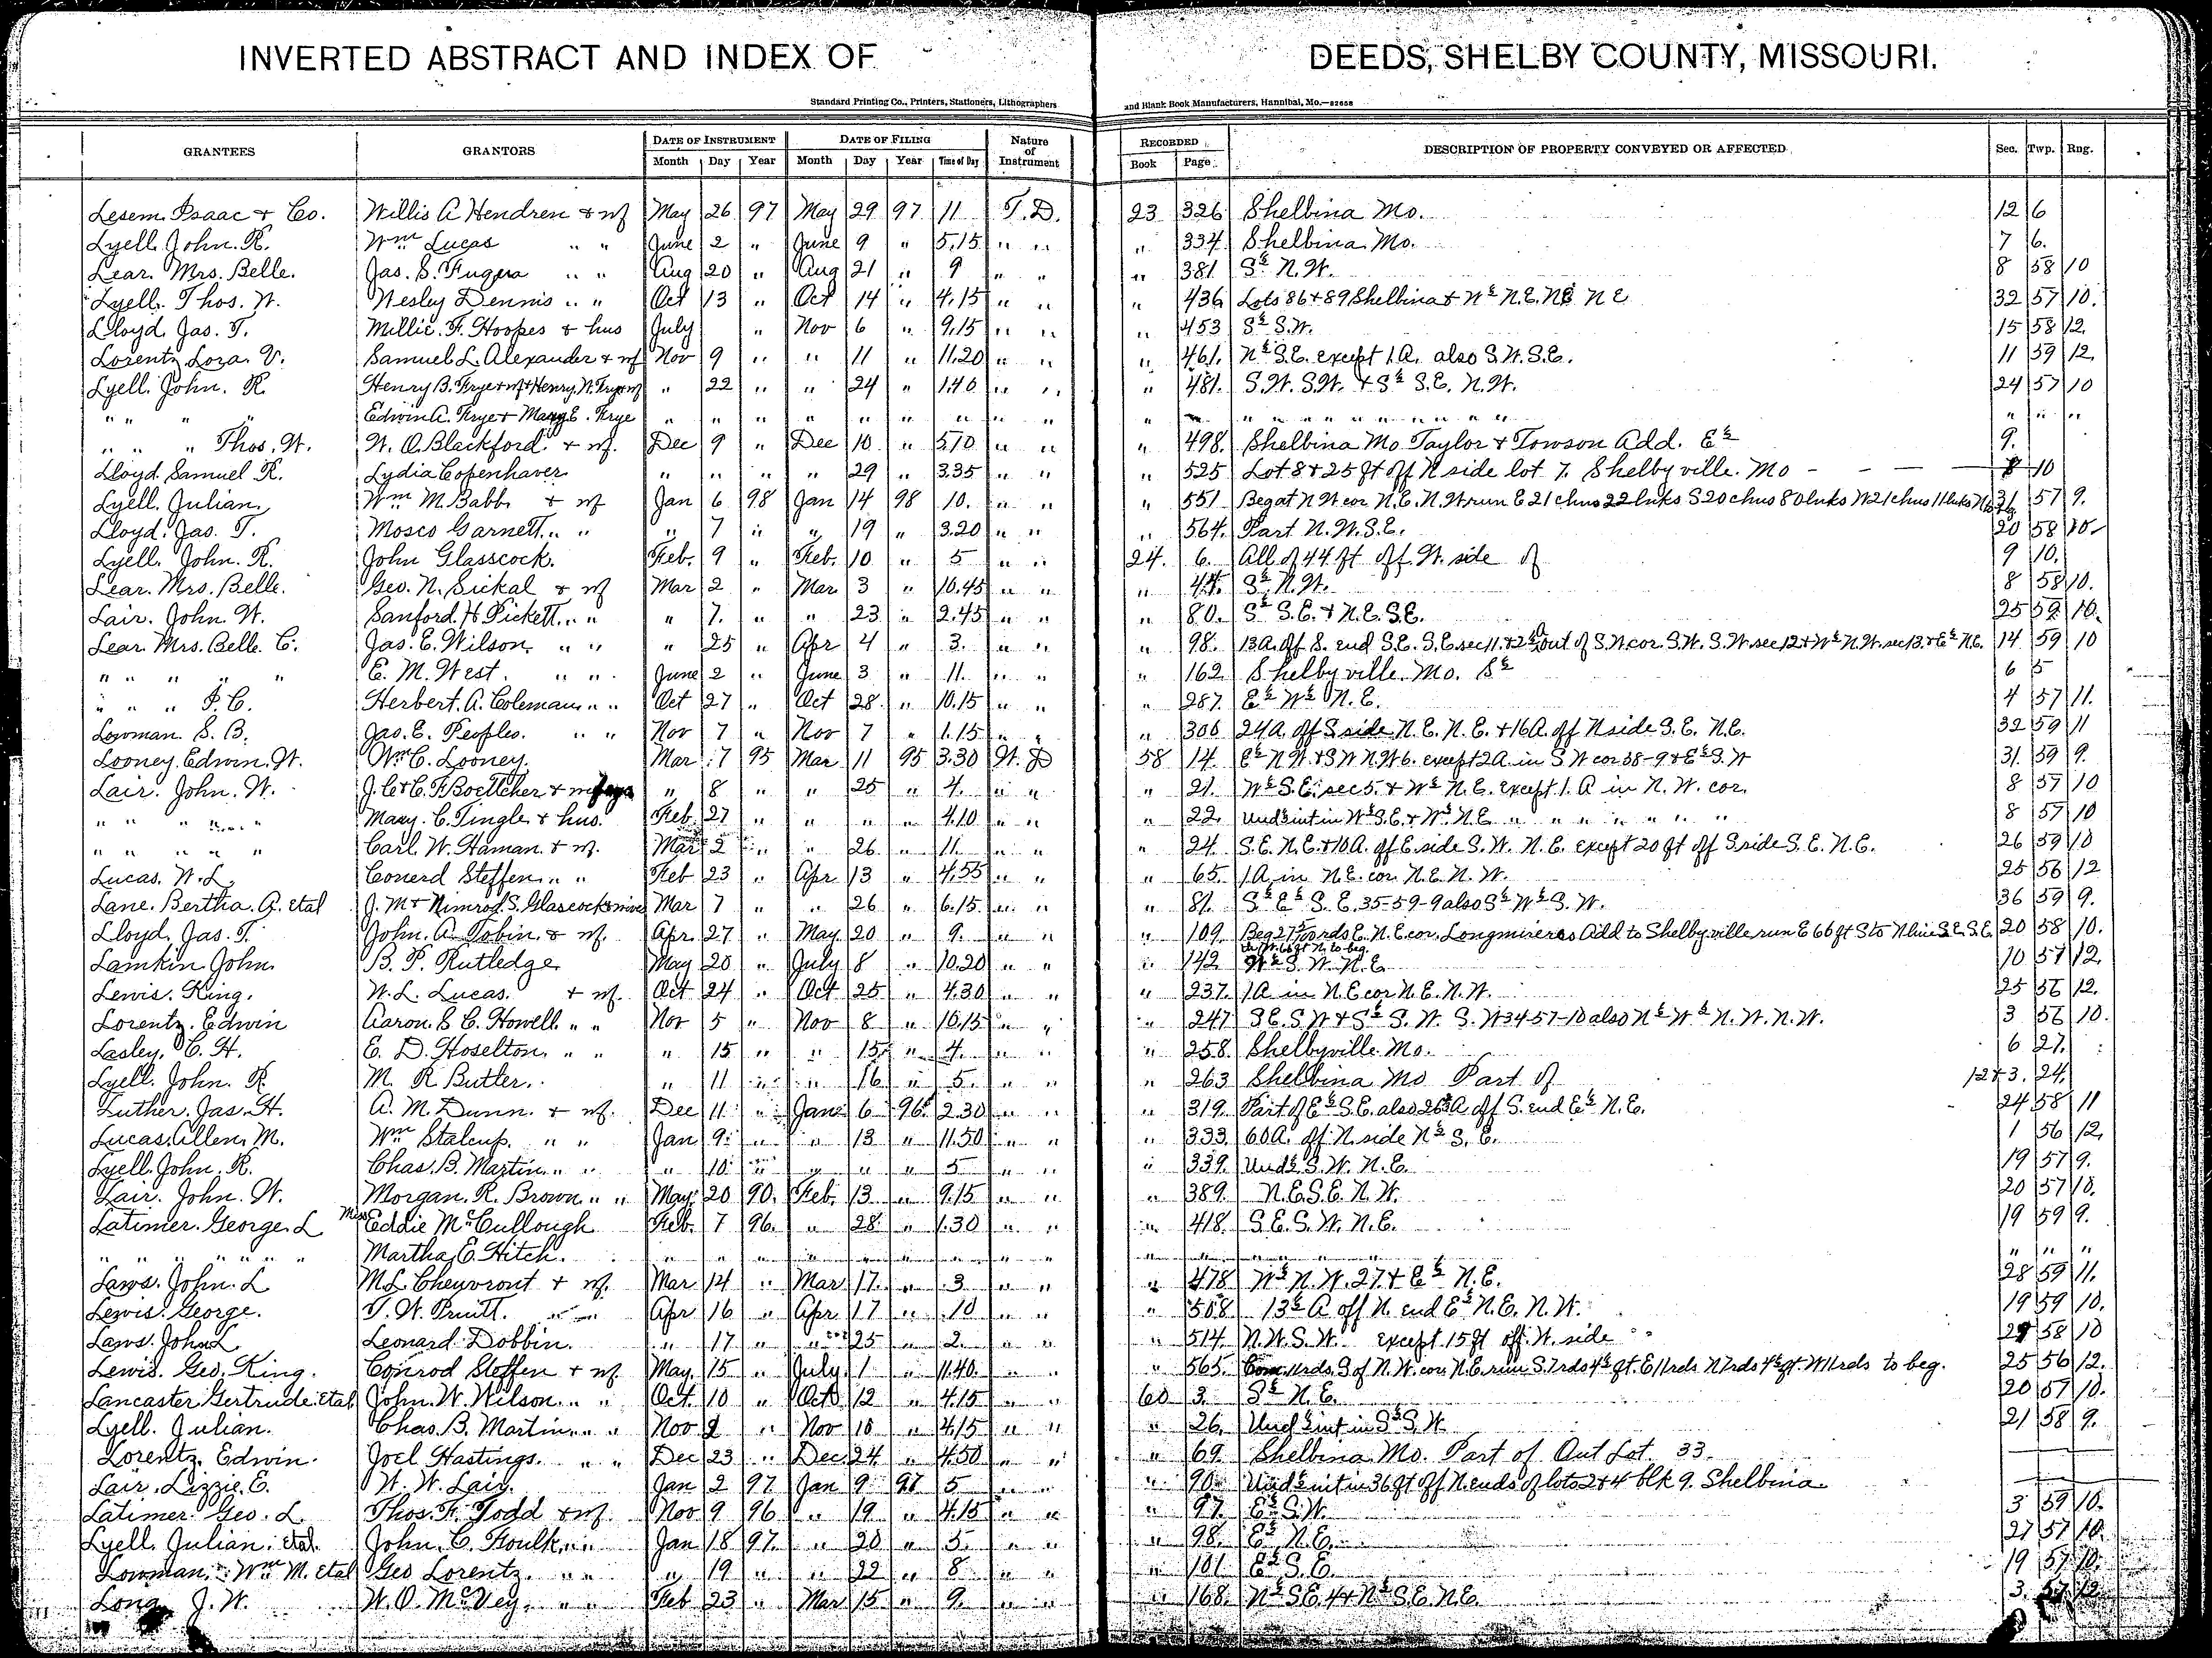 INVERTED ABSTRACT AND INDEX OF DEEDS, SHELBY COUNTY, MISSOURI.
Standard Printing Co., Printers, Stationers, Lithographers and Blank Book Manufacturers, Hannibal, Mo.—82658
GRANTEES GRANTORS DATE OF INSTRUMENT DATE OF FILING Nature of Instrument RECORDED DESCRIPTION OF PROPERTY CONVEYED OR AFFECTED Sec. Twp. Rng.
Month Day Year Month Day Year Time of Day Book Page
Lesem. Isaac & Co. Willis A Hendren & wf May 26 97 May 29 97 11 T.D. 23 326 Shelbina Mo. 12 6
Lyell. John. R. Wm Lucas " " June 2 " June 9 " 5.15 " " " 334. Shelbina Mo. 7 6.
Lear. Mrs. Belle. Jas. S. Fugera " " Aug 20 " Aug 21 " 9 " " " 381. S½ N.W. 8 58 10
Lyell. Thos. W. Wesley Dennis " " Oct 13 " Oct 14 " 4.15 " " " 436. Lots 86 & 89 Shelbina & W½ N.E. NE NE 32 57 10.
Lloyd. Jas. T. Millie. F. Hoopes & hus July " Nov 6 " 9.15 " " " 453 S½ S.W. 15 58 12.
Lorentz Lora. V. Samuel L. Alexander & wf Nov 9 " " 11 " 11.20 " " " 461. N½ S.E. except 1.A. also S.W. S.E. 11 59 12.
Lyell. John. R. Henry B. Frye & wf & Henry. W. Frye & wf " 22 " " 24 " 1.40 " " " 481. S.W. S.W. & S½ S.E. N.W. 24 57 10
" " " " Edwin A. Frye & Mary E. Frye " " " " " " " " " " " " " " " " " " " " " " " "
" " " Thos. W. W. O. Blackford & wf. Dec 9 " Dec 10 " 5.10 " " " 498. Shelbina Mo Taylor & Towson Add. E½ 9.
Lloyd. Samuel R. Lydia Copenhaver " " " " 29 " 3.35 " " " 525 Lot 8 & 25 ft off N side lot 7. Shelbyville. Mo - - - 8 10
Lyell. Julian. Wm M. Babb. & wf Jan 6 98 Jan 14 98 10. " " " 551 Beg at NW cor N.E. N.W run E 21 chns 22 lnks S 20 chns 80 lnks W 21 chns 11 lnks N to beg 31 57 9.
Lloyd. Jas. T. Mosco Garnett " " " 7 " " 19 " 3.20 " " " 564. Part N.W. S.E. 20 58 10.
Lyell. John. R. John Glasscock. Feb. 9 " Feb. 10 " 5 " " 24. 6. All of 44 ft off W. side of 9 10.
Lear. Mrs. Belle. Geo. N. Sickal & wf Mar 2 " Mar 3 " 10.45 " " " 44. S½ N.W. 8 58 10.
Lair. John. W. Sanford. H Pickett " " " 7. " " 23 " 2.45 " " " 80. S½ S.E. & N.E. S.E. 25 59 10.
Lear. Mrs. Belle. C. Jas. E. Wilson. " " " 25 " Apr 4 " 3. " " " 98. 13A. off S. end S.E. S.E. sec 11. & 2½A out of S.W. cor. S.W. S.W. sec 12 & W½ N.W. sec 13. & E½ N.E. 14 59 10
" " " " E. M. West. " " June 2 " June 3 " 11. " " " 162 Shelbyville. Mo. S½ 6 5
" " " P. C. Herbert. A. Coleman " " Oct 27 " Oct 28. " 10.15 " " " 287. E½ W½ N.E. 4 57 11.
Lowman. S. B. Jas. E. Peoples. " " Nov 7 " Nov 7 " 1.15 " " " 306 24A. off S side N.E. N.E. & 16A. off N side S.E. N.E. 32 59 11
Looney. Edwin. W. Wm C. Looney. Mar 7 95 Mar 11 95 3.30 W. D 58 14. E½ N.W. & S W N.W 6. except 2A in S W cor 58-9 & E½ S.W 31. 59 9.
Lair. John. W. J. C & C. F. Boettcher & " 8 " " 25 " 4. " " " 21. W½ S.E. sec 5. & W½ N.E. except 1. A in N. W. cor. 8 57 10
" " " " Mary. C. Tingle & hus. Feb. 27 " " " " 4.10 " " " 22. Und ½ int in W½ S.E. & W½ N.E " " " " " " " 8 57 10
" " " " " Carl. W. Haman. & wf. Mar 2 " " 26 " 11. " " " 24. S.E. N.E. & 10A. off E. side S.W. N.E. except 20 ft off S side S.E. N.E. 26 59 10
Lucas. W. L. Conerd Steffen " " Feb 23 " Apr 13 " 4.55 " " " 65. 1A in N.E. cor N.E. N.W. 25 56 12
Lane. Bertha. A. etal J. M & Nimrod. S. Glascock & wives Mar 7 " " 26 " 6.15 " " " 81. S½ E½ S.E. 35-59-9 also S½ W½ S.W. 36 59 9.
Lloyd. Jas. T. John. A. Tobin. & wf. Apr. 27 " May 20 " 9. " " " 109. E. N.E. cor. Longmireres Add to Shelbyville run E 66 ft S to N line S.E. S.E. 20 58 10.
th W. 66 ft N. to beg.
Lamkin John. B. P. Rutledge May 20 " July 8 " 10.20 " " " 142 W½ S.W. N.E 10 57 12.
Lewis. King. W. L. Lucas. & wf. Oct 24 " Oct 25 " 4.30 " " " 237. 1A in N.E cor N.E. N.W. 25 56 12.
Lorentz. Edwin Aaron. S C. Howell " " Nov 5 " Nov 8 " 10.15 " " " 247. S.E. S.W & S½ S.W. S.W 34-57-10 also N½ W½ N.W. N.W. 3 56 10.
Lasley. C. H. E. D. Hoselton. " " " 15 " " 15 " 4. " " " 258. Shelbyville Mo. 6 27.
Lyell. John. R. M. R Butler. " 11 " " 16 " 5. " " " 263 Shelbina Mo Part of 12&3. 24.
Luther. Jas. H. A. M. Dunn. & wf. Dec 11 " Jan 6 96 2.30 " " " 319. Part of E½ S.E. also 26 A off S. end E½ N.E. 24 58 11
Lucas. Allen. M. Wm Stalcup. " " Jan 9 " " 13 " 11.50 " " " 333. 60A. off N. side N½ S.E. 1 56 12.
Lyell. John. R. Chas. B. Martin " " " 10 " " " " 5 " " " 339. Und ½ S.W. N.E. 19 57 9.
Lair. John. W. Morgan. R. Brown " " May 20 90. Feb. 13 " 9.15 " " " 389. N.E. S.E. N.W. 20 57 10.
Latimer. George. L Miss Eddie McCullough Feb. 7 96. " 28 " 1.30 " " " 418. S.E. S.W. N.E. 19 59 9.
" " " " " " Martha. E. Hitch. " " " " " " " " " " " " " " " " " " "
Laws. John. L M. L. Cheuvront & wf. Mar 14 " Mar 17. " 3 " " " 478 W½ N.W. 27. & E½ N.E. 28 59 11.
Lewis. George. T. W. Pruitt. " " Apr 16 " Apr 17 " 10 " " " 508. 13½ A off N. end E½ N.E. N.W. 19 59 10.
Laws. John. L Leonard Dobbin. " 17 " " 25 " 2. " " " 514. N.W. S.W. except 15 ft off W. side 58 10
Lewis. Geo. King. Conrod Steffen & wf. May. 15 " July 1 " 11.40. " " " 565. Com. 11rds. S of N.W. cor N.E. run S. 7rds 4½ ft. E 11rds N 7rds 4½ ft. W 11rds to beg. 25 56 12.
Lancaster Gertrude. Etal John. W. Wilson " " Oct. 10 " Oct 12 " 4.15 " " 60 3. S½ N.E. 20 57 10.
Lyell. Julian. Chas. B. Martin " " Nov 2 " Nov 10 " 4.15 " " " 26. Und ½ int in S½ S.W. 21 58 9.
Lorentz. Edwin. Joel Hastings. " " Dec 23 " Dec 24 " 4.50 " " " 69. Shelbina Mo. Part of Out Lot. 33.
Lair. Lizzie. E. W. W. Lair. Jan 2 97. Jan 9 97 5 " " " 90. Und ½ int in 36 ft off N. ends of lots 2 & 4 blk 9. Shelbina
Latimer. Geo. L. Thos. F. Todd & wf. Nov 9 96 " 19 " 4.15 " " " 97. E½ S.W. 3 59 10.
Lyell. Julian. Etal. John. C. Foulk " " Jan 18 97. " 20 " 5. " " " 98. E½ N.E. 27 57 10.
Lowman. Wm M. Etal Geo Lorentz. " " " 19 " " 22 " 8 " " " 101 E½ S.E. 19 57 10.
Long J. W. W. O. McVey. " " Feb 23 " Mar 15 " 9. " " " 168. N½ S.E. 4 & N½ S.E. N.E. 3. 57 12